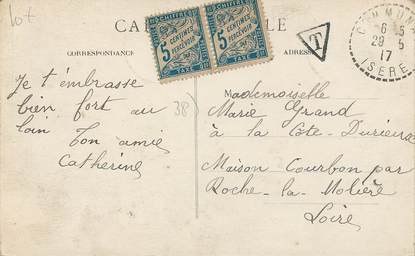 lot
CORRESPONDANCE
ADRESSE
CHIFFRE
5
CENTIMES
A
PERCEVOIR
TAXE
CHIFFRE
5
CENTIMES
A
PERCEVOIR
TAXE
T
6 15
29 5
17
ISERE
Je t'embrasse
bien fort au
loin Ton amie
Catherine
38
Mademoiselle
Marie Grand
à la Côte-Durieux
Maison Courbon par
Roche-la-Molière
Loire